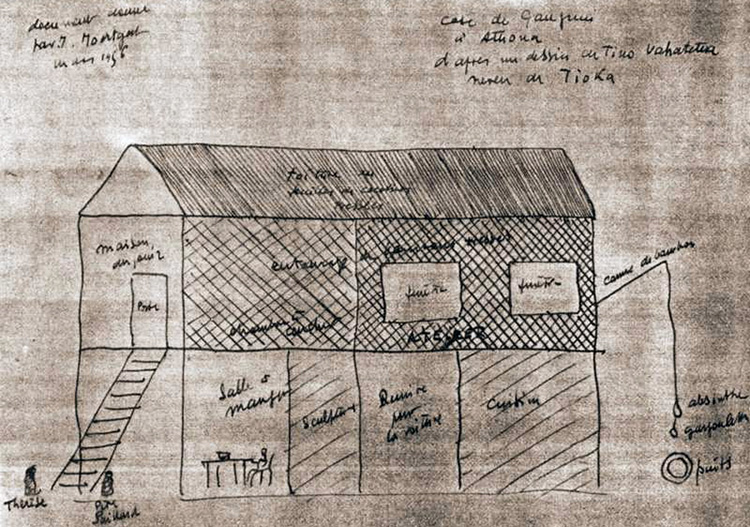 document donné
par J. Moortgat
mars 1956
case de Gauguin
à Atuona
d'après un dessin de Tino Vahatetua
neveu de Tioka
toiture en
feuilles de cocotier
tressées
maison
du jouir
entourage de bambous tressés
Porte
fenêtre
fenêtre
canne de bambou
chambre à
coucher
ATELIER
Salle à
manger
Sculpture
Remise
pour
la voiture
Cuisine
absinthe
gargoulette
puits
Thérèse
Père
Paillard